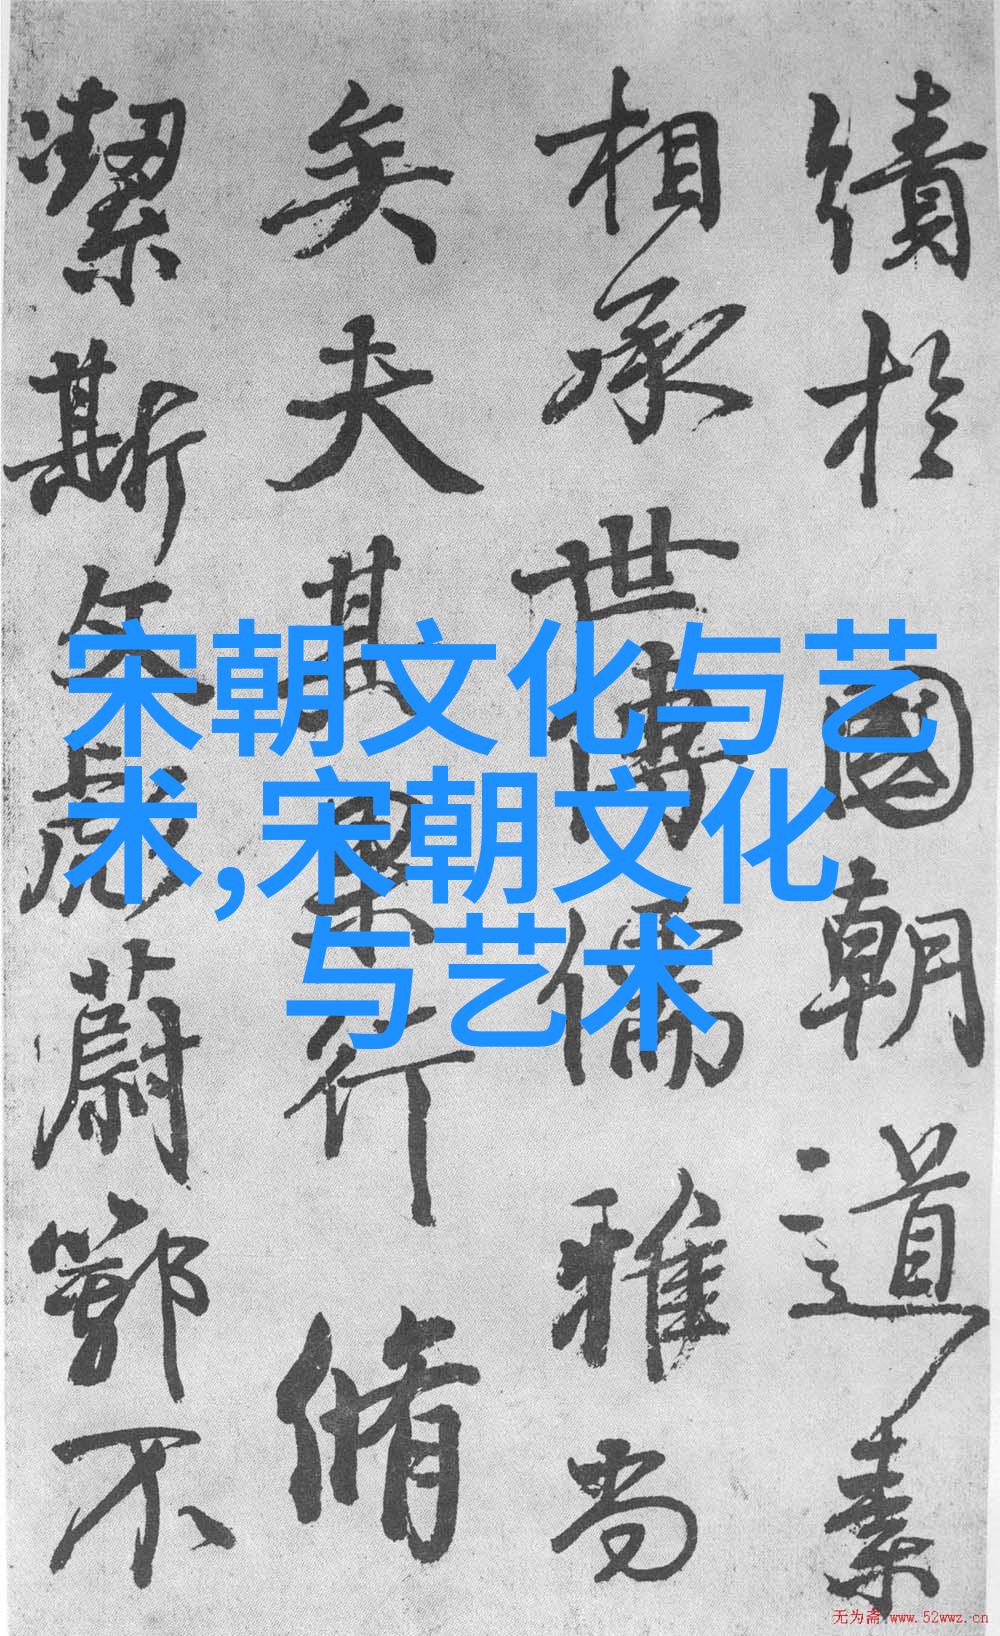 績於國朝道素
相承世傳儒雅尚
矣夫其果行脩
潔斯文彪蔚鄂不
宋朝文化与艺
术,宋朝文化
与艺术
无为斋 www.52wwz.cn